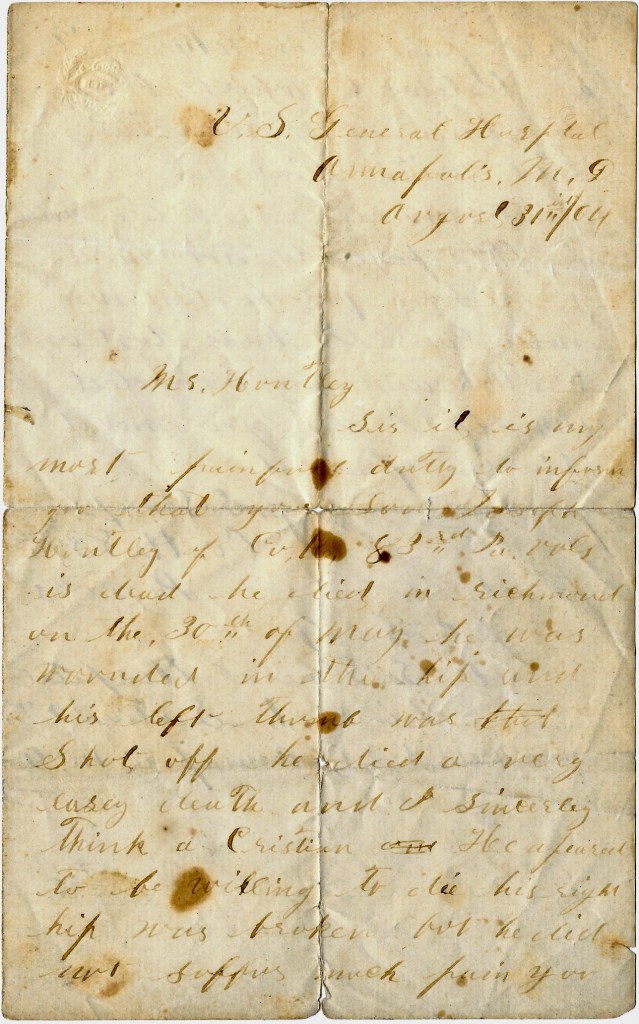 U. S. General Hosptal
Annapolis, M, D
August 31st/64
Ms. Huntley
Sir it is my
most painfull dutty to inform
you that your Son Joseph
Huntley of Co, 83rd Pa. vols
is dead he died in richmond
on the, 30th of may he was
wounded in the hip and
his left thumb was shot
Shot off he died a very
easey death and I sincerley
think a Cristian He apeared
to be willing to die his right
hip was broken but he did
not suffur much pain you